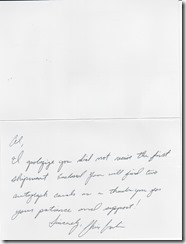 Al,
I apologize you did not receive the first
shipment. Enclosed you will find two
autograph cards as a thank you for
your patience and support!
Sincerely,